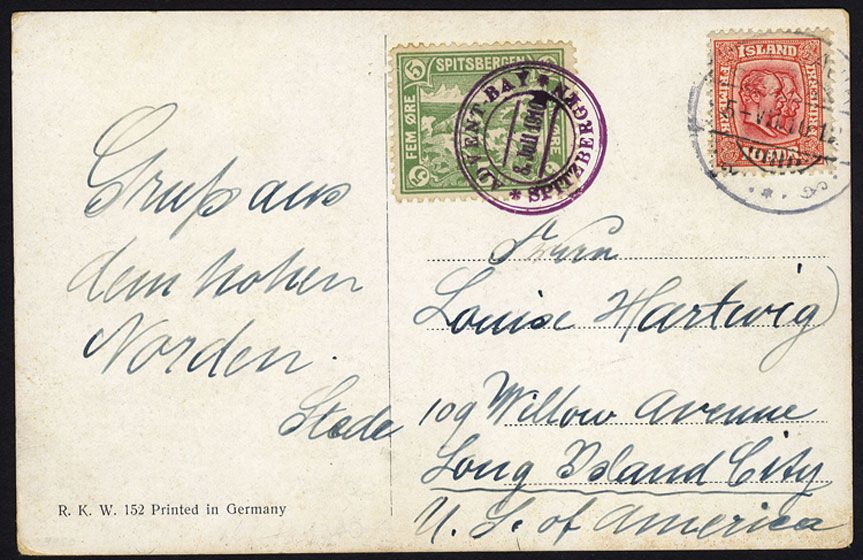 Gruß aus
dem hohen
Norden.
Stede
R. K. W. 152 Printed in Germany
5 SPITSBERGEN
FEM ØRE
5
ADVENT-BAY
SPITZBERGEN
8. Juli 1910
ÍSLAND
10 AUR
Louise Hartwig
109 Willow Avenue
Long Island City
U. S. of America